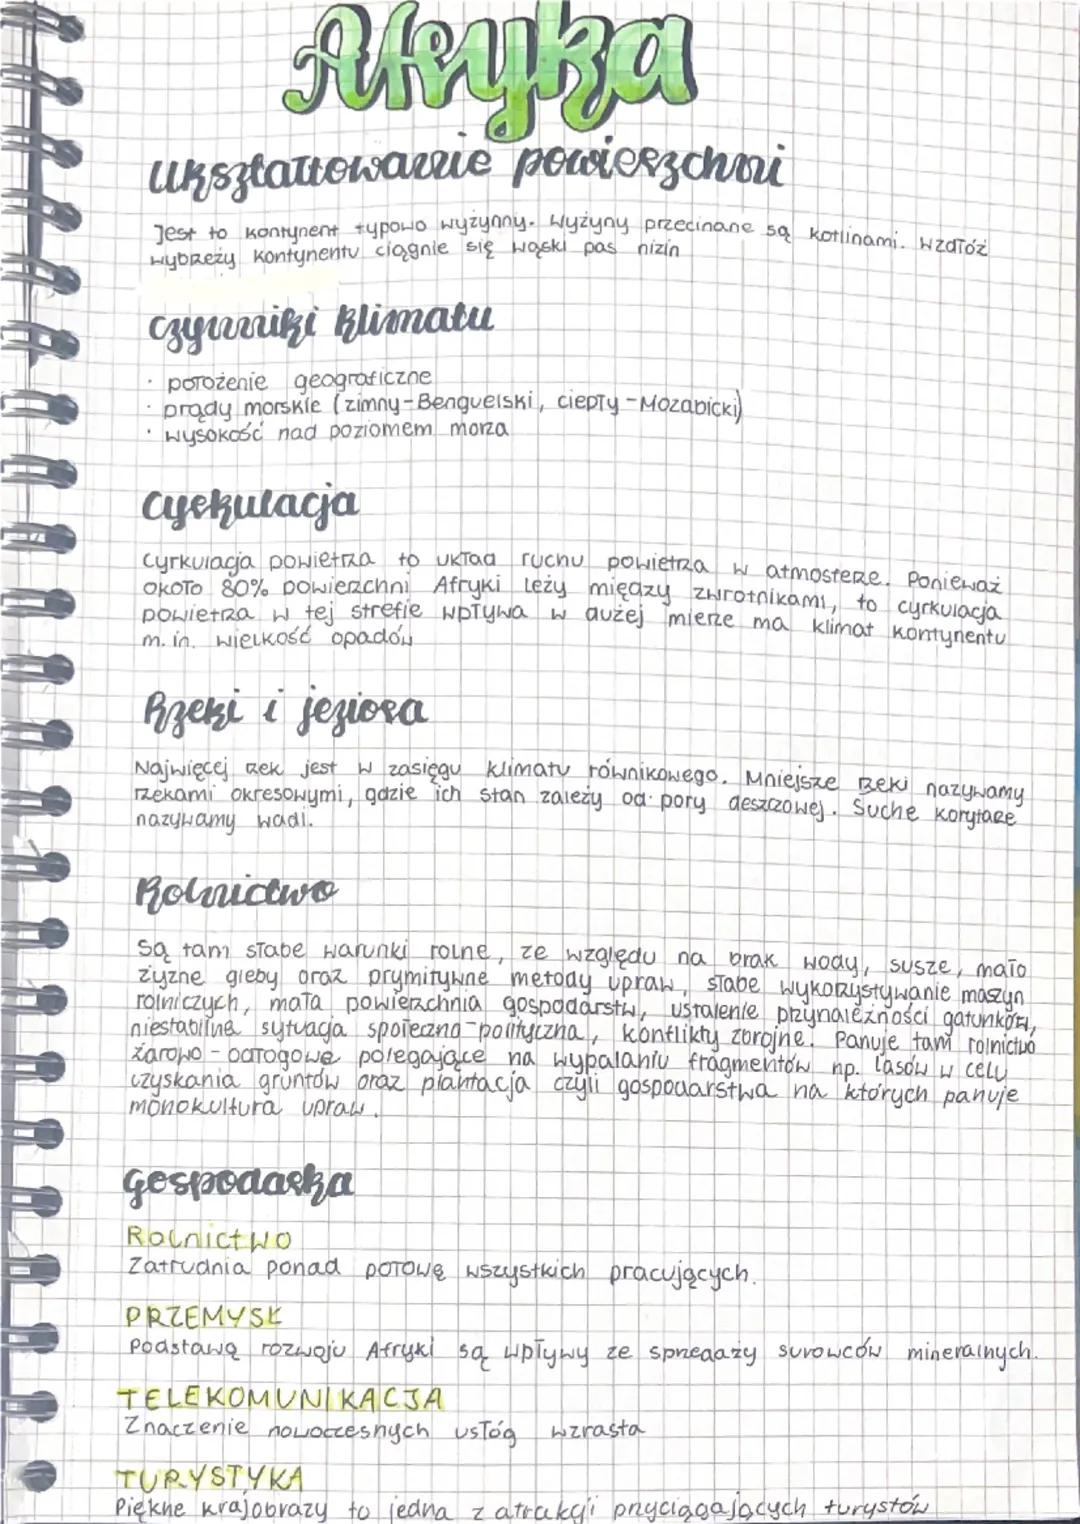 Afryka
Ukształtowanie powierzchni
Jest to kontynent typowo wyżynny. Wyżyny przecinane są kotlinami. Wzdłóż
wybrzeży kontynentu ciągnie się wąski pas nizin
Czynniki klimatu
· położenie geograficzne
· prądy morskie (zimny-Benguelski, ciepły-Mozabicki)
· wysokość nad poziomem morza
Cyrkulacja
Cyrkulacja powietrza to układ ruchu powietrza w atmosferze. Ponieważ
około 80% powierzchni Afryki leży między zwrotnikami, to cyrkulacja
powietrza w tej strefie wpływa w dużej mierze ma klimat kontynentu
m.in. wielkość opadów
Rzeki i jeziora
Najwięcej rzek jest w zasięgu klimatu równikowego. Mniejsze rzeki nazywamy
rzekami okresowymi, gdzie ich stan zależy od pory deszczowej. Suche korytarze
nazywamy wadi.
Rolnictwo
Są tam słabe warunki rolne, ze względu na brak wody, susze, mało
żyzne gleby oraz prymitywne metody upraw, słabe wykorzystywanie maszyn
rolniczych, mała powierzchnia gospodarstw, ustalenie przynależności gatunków,
niestabilna sytuacja społeczno-polityczna, konflikty zbrojne. Panuje tam rolnictwo
żarowo-odłogowe polegające na wypalaniu fragmentów np. lasów w celu
uzyskania gruntów oraz plantacja czyli gospodarstwa na których panuje
monokultura upraw.
Gospodarka
Rolnictwo
Zatrudnia ponad połowę wszystkich pracujących.
PRZEMYSŁ
Podstawą rozwoju Afryki są wpływy ze sprzedaży surowców mineralnych.
TELEKOMUNIKACJA
Znaczenie nowoczesnych usłóg wzrasta
TURYSTYKA
Piękne krajobrazy to jedna z atrakcji przyciągających turystów